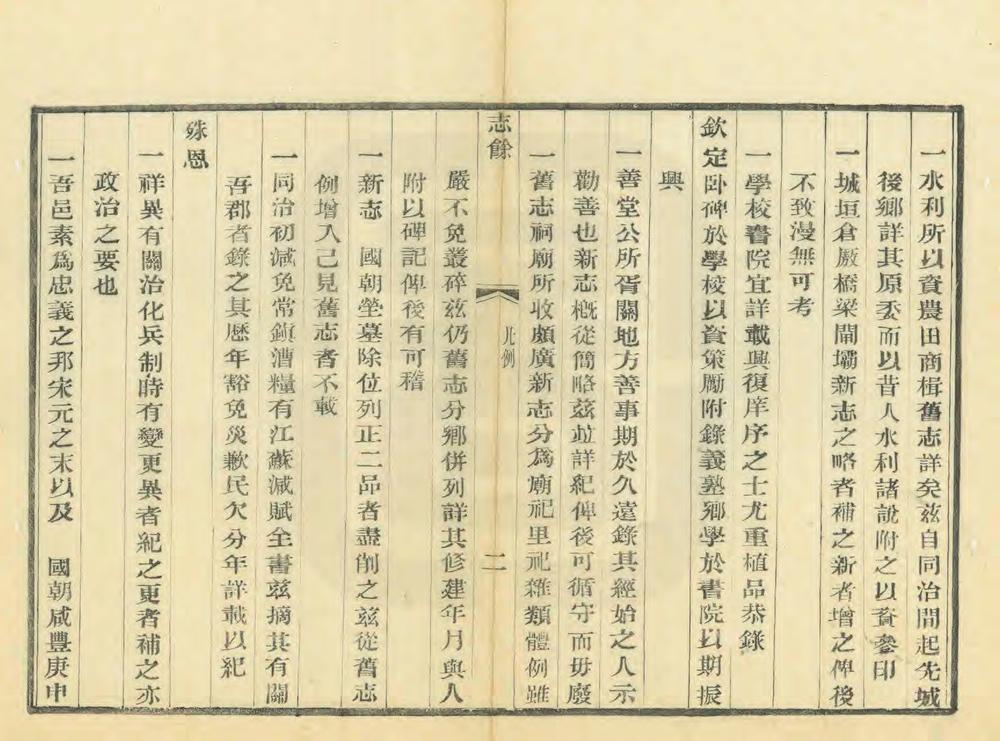 一水利所以資農田商楫舊志詳矣茲自同治間起先城
後鄉詳其原委而以昔人水利諸說附之以資參印
一城垣倉厫橋梁閘壩新志之略者補之新者增之俾後
不致漫無可考
一學校書院宜詳載興復庠序之士尤重植品恭錄
欽定臥碑於學校以資策勵附錄義塾鄉學於書院以期振
興
一善堂公所胥關地方善事期於久遠錄其經始之人示
勸善也新志槪從簡略茲竝詳紀俾後可循守而毋廢
一舊志祠廟所收頗廣新志分爲廟祀里祀雜類體例雖
志餘
凡例
二
嚴不免叢碎茲仍舊志分鄉併列詳其修建年月與人
附以碑記俾後有可稽
一新志 國朝塋墓除位列正二品者盡削之茲從舊志
例增入已見舊志者不載
一同治初減免常鎭漕糧有江蘇減賦全書茲摘其有關
吾郡者錄之其歷年豁免災歉民欠分年詳載以紀
殊恩
一祥異有關治化兵制時有變更異者紀之更者補之亦
政治之要也
一吾邑素爲忠義之邦宋元之末以及 國朝咸豐庚申